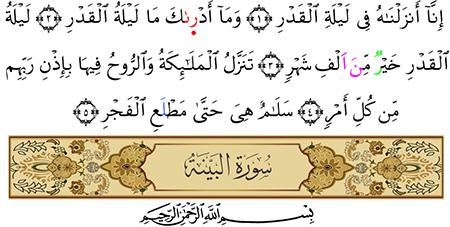 إِنَّآ أَنزَلۡنَٰهُ فِي لَيۡلَةِ ٱلۡقَدۡرِ ﴿١﴾ وَمَآ أَدۡرِىٰكَ مَا لَيۡلَةُ ٱلۡقَدۡرِ ﴿٢﴾ لَيۡلَةُ
ٱلۡقَدۡرِ خَيۡرٞ مِّنَ اَلۡفِ شَهۡرٖ ﴿٣﴾ تَنَزَّلُ ٱلۡمَلَٰٓئِكَةُ وَٱلرُّوحُ فِيهَا بِإِذۡنِ رَبِّهِم
مِّن كُلِّ أَمۡرٖ ﴿٤﴾ سَلَٰمٌ هِيَ حَتَّىٰ مَطۡلَعِ ٱلۡفَجۡرِ ﴿٥﴾
سُورَةُ البَيِّنَةِ
بِسۡمِ ٱللَّهِ ٱلرَّحۡمَٰنِ ٱلرَّحِيمِ